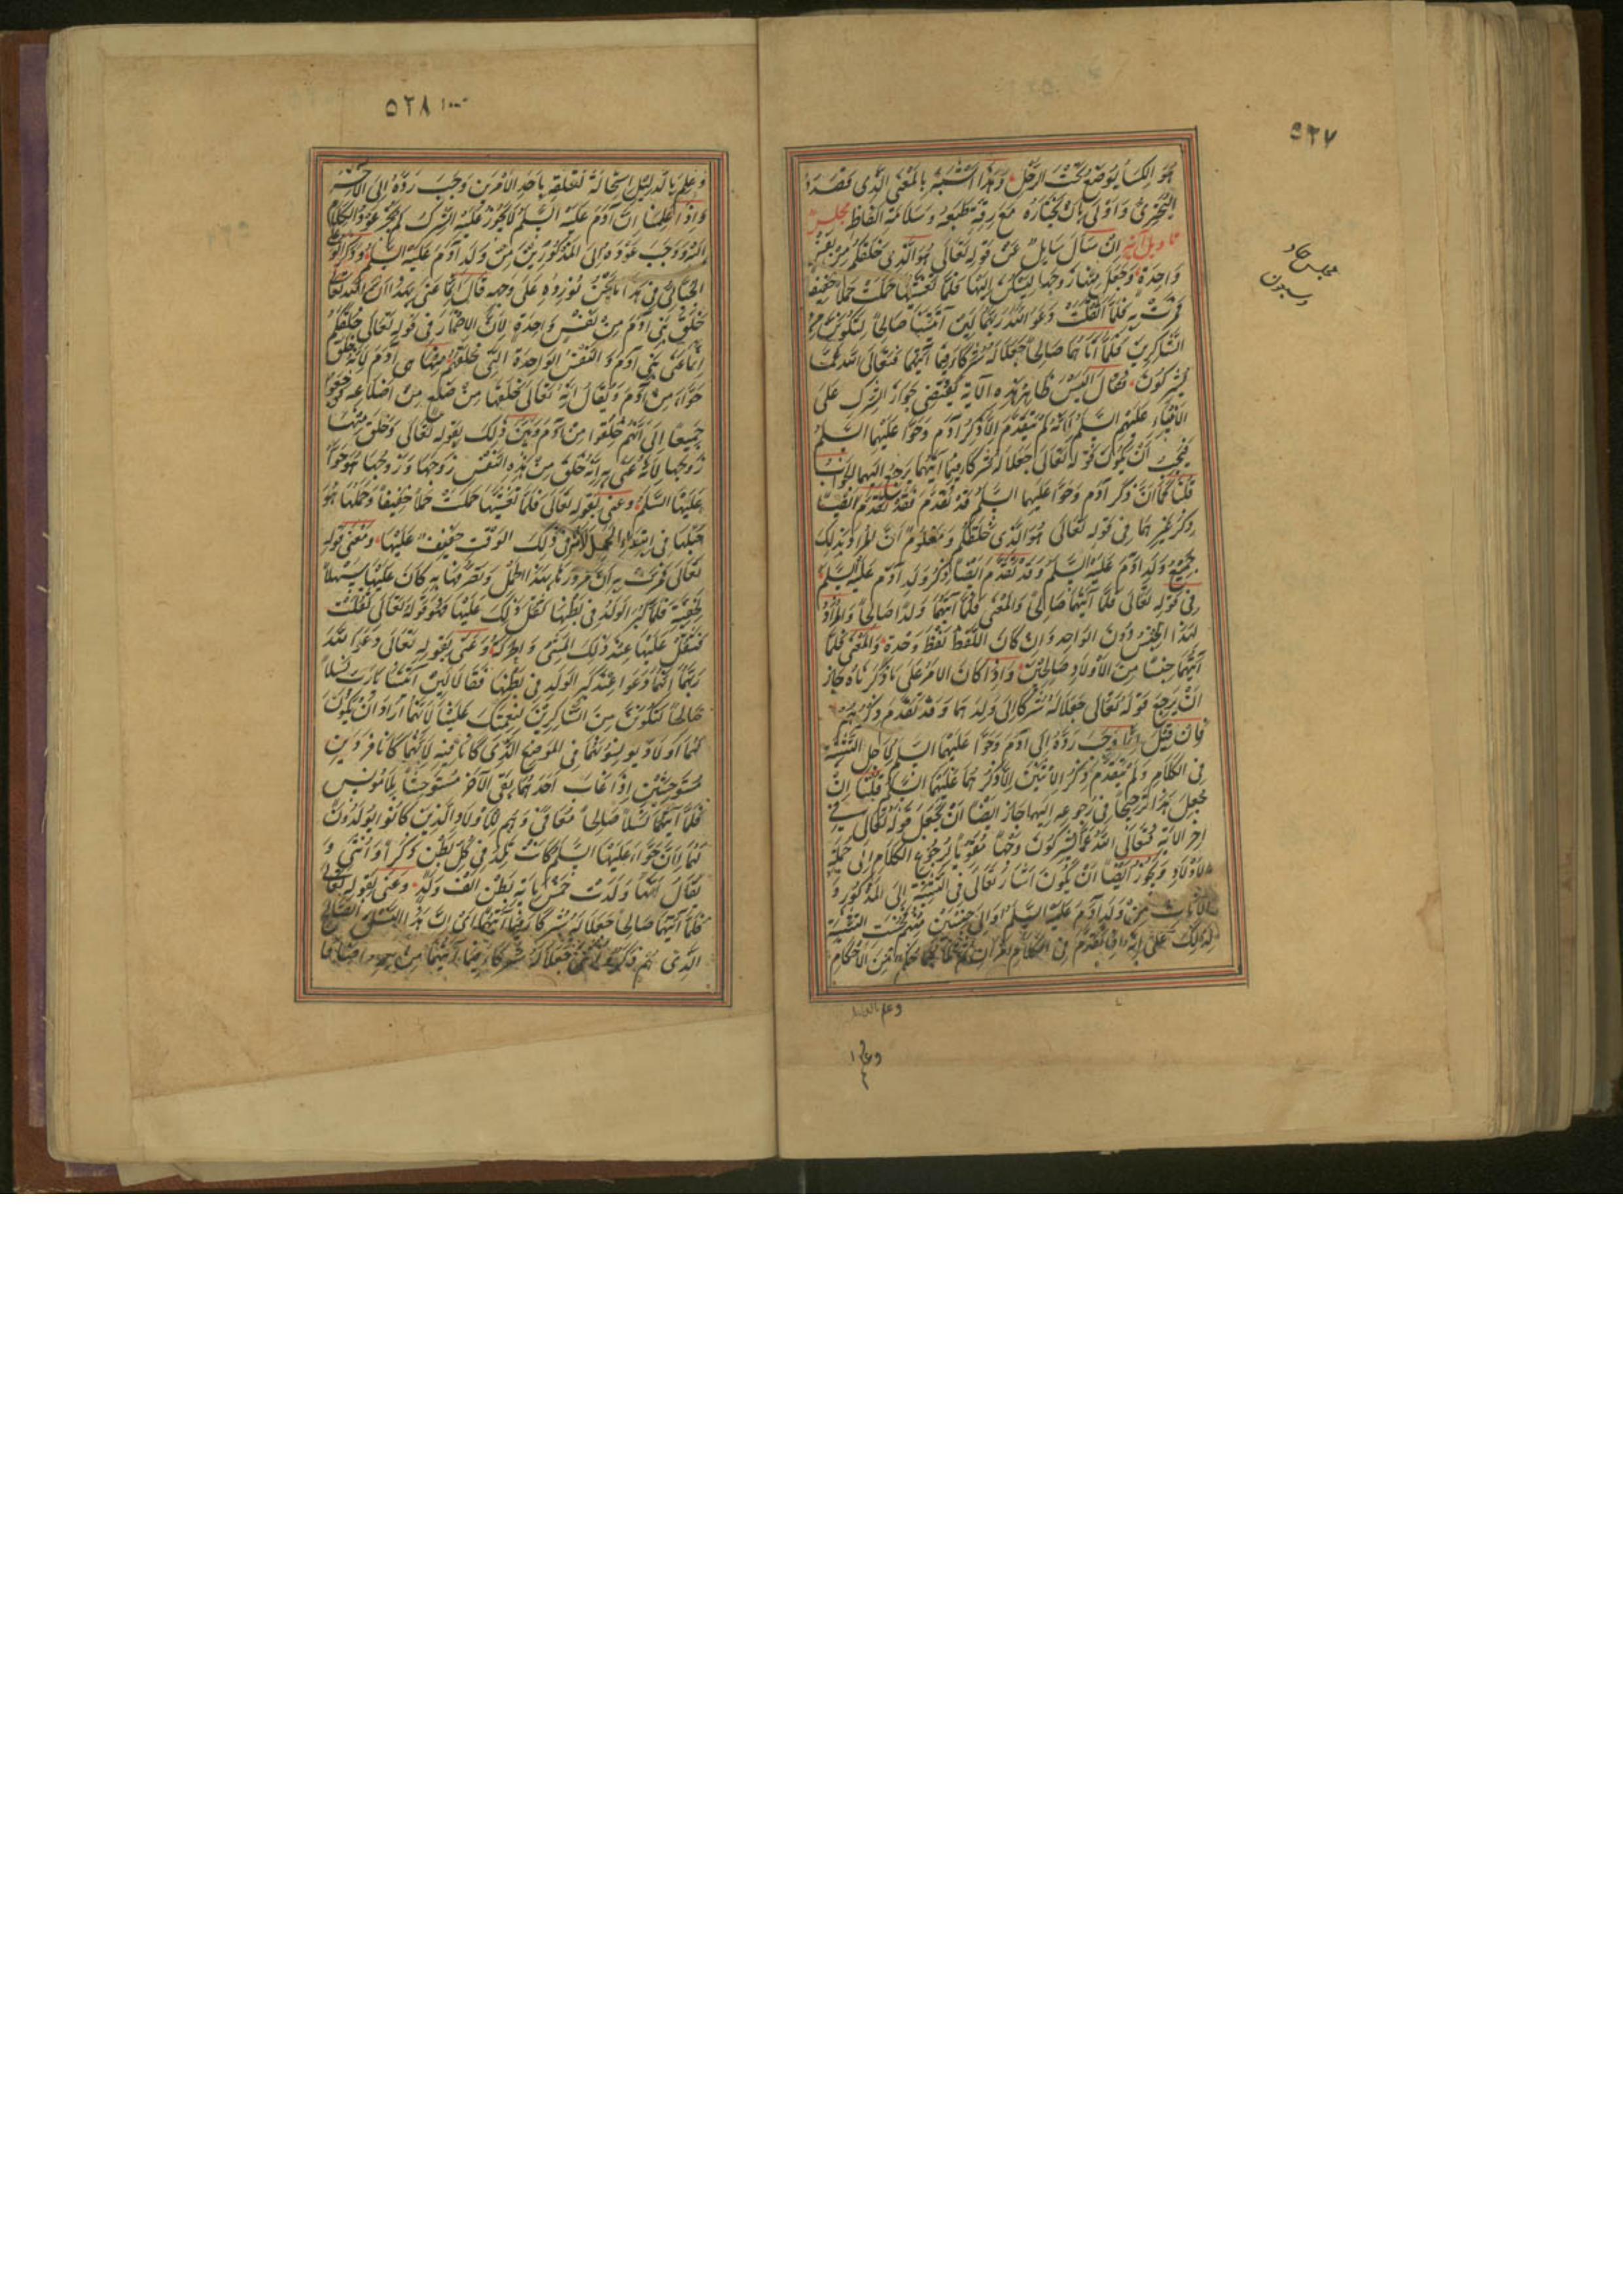 ٥٢٧
هُوَ الكسا يُوضع تحت الرَّحْل وَهذا اشبَه بالمَعنى الَّذى قصَدَهُ
البُحْترىّ وَاَوْلى بان يختَارَهُ مَع رقّة طبعه وسَلامَة الفاظه مجلس
تاويل آية اِنْ سَالَ سَايلٌ عَنْ قوله تَعَالى هُوَ الَّذى خَلقكُم مِنْ نَفْسٍ
وَاحِدَة وَجَعَل مِنها زوجَها ليَسْكُن اِلَيْهَا فَلمّا تَغَشّيها حَمَلت حَملاً خَفيفا
فَمرّت بِه فَلمّا اَثْقَلَت دَعَوَا اللهَ رَبَّهُما لَئِن آتَيتنا صَالحاً لنكُونَنّ مِن
الشّاكِرينَ فَلمّا اتَاهُمَا صَالِحاً جَعَلا لَه شُرَكَاءَ فيما آتيهُما فتَعَالَى الله عَمَّا
يُشركُونَ فقال اَليْسَ ظاهِرُ هذه الآية يَقْتضِى جَوازَ الشّرك عَلَى
الانبيَاءِ عَلَيْهم السَّلم لانّهُ لم يتقَدّم الّا ذِكرُ آدَم وَحَوّا عَليْهما السّلم
فيَجبُ اَنْ يَكُونَ قَولُه تَعَالَى جَعَلا لَهُ شرَكَاءَ فيما آتيهُما يَرجعُ اليهما الجَوابُ
قلنا كما اَنّ ذكر آدَم وَحَوّا عَليهما السَّلم قد تقَدَّمَ فَقَد تقَدّمَ ايضاً
ذِكرُ غيرهما فى قوله تَعَالى هُوَ الّذى خَلقَكُم وَمعلُوم اَنّ المُراد بذلك
جَميع وَلدِ آدَم عَليْهِ السَّلم وَقَد تقَدّم ايضاً ذِكرُ وَلدِ آدَم عَليْه السّلم
فى قَوله تعَالَى فلمّا آتيهُما صَالحاً وَالمَعنى فلمّا آتيهُما وَلداً صَالحاً وَالمُرادُ
بهذا الجِنْسُ دُونَ الوَاحِد وَاِنْ كانَ اللّفظ لَفْظَ وَحْدة وَالمَعْنى فَلمّا
آتيهُما جِنساً مِنَ الاَولادِ صَالحِينَ وَاِذَا كانَ الامرُ عَلى مَا ذكَرْناهُ جَازَ
اَنْ يَرجعَ قوله تَعَالى جَعَلا لَهُ شُرَكاءَ اِلى وَلدِهما وَقد تقَدَّم ذِكرُهُم
فَان قِيلَ اِنّما وَجَبَ رَدُّهُ اِلى آدَم وَحَوّا عَليْهما السّلم لاَجل التَّثنية
فى الكلامِ وَلم يَتقَدّم ذكرُ اِثنَيْن اِلّا ذكرُهُما عَليهما السّلم قُلنا اِنْ
جُعِلَ هَذا تَرجيحاً فى رُجوعه اليهما جازَ ايضاً اَنْ يُجعَل قَوله تَعَالى فى
اخر الايَة فَتَعَالَى اللهُ عَمّا يُشركُونَ وَجْهاً مُقَوّياً لرُجُوع الكلام اِلى جُمْلة
الاَولادِ وَيجُوزُ ايضاً اَنْ يَكُونَ اَشَارَ تَعَالى فى التَّثنِيَة اِلى الذُّكُور وَ
الاِناث مِنْ وَلدِ آدَم عَليهِ السَّلم اَوْ اِلَى جِنْسَيْن مِنْهُم فحسُنَت التثنية
لِذلِكَ
مجلس حاد
وسبعون
٥٢٨
وَعُلِمَ بالدّليل استحَالة تعَلّقه باَحَدِ الاَمْرين وَجَبَ رَدّه اِلى الآخر
وَاِذا عَلِمنا اَنّ آدَم عَلَيْهِ السَّلم لا يجُوزُ عَليْه الشِّرك لم يَجُز عَوْد الكلام
اِليه وَوَجَبَ عَوْدَه اِلى المذكُورينَ مِن وَلدِ آدَم عَليْهِ السّلم وَذكر ابُو على
الجُبّائى فى هَذا مَا نَحْنُ نُورِدُه عَلَى وَجهه قال اِنّما عَنى بهذا اَنّ اللهَ تعَالى
خَلقَ بَنى آدَمَ مِنْ نَفْسٍ وَاحِدَةٍ لاَنّ الاِضْمَارَ فى قوله تَعَالى خَلقَكُم
اِنّما عَنى بَنى آدَمَ وَالنَّفْسُ الوَاحِدَة الّتى خَلقَهُم مِنهَا هى آدَم لانّهُ خَلَقَ
حَوّاء مِنْ آدَمَ وَيُقَالُ اِنَّهُ تَعَالى خَلقَها مِنْ ضلعٍ مِن اَضلاعِه فرجَعُوا
جَميعاً اِلى اَنّهم خُلِقُوا مِن آدَم وَبَيَّنَ ذلِكَ بقَوله تَعَالى وَخَلَقَ مِنْهَا
زَوجَها لاَنّهُ عَنى به اَنّهُ خَلقَ مِنْ هذِه النّفْس زَوجَهَا وَزَوجُهَا هُوَ حَوّا
عَليْهَا السّلم وَعَنى بقوله تعَالَى فلمّا تَغشّيهَا حَمَلتْ حَملاً خَفيفاً وَحَمْلُها هُوَ
حَبَلُها فى ابتدَاءِ الحَمل لانّه فى ذلِكَ الوَقتِ خَفيفٌ عَليْها وَمَعنى قوله
تَعَالى فَمَرّت به اَنّ مُرُورَهَا بهذَا الحَمْل وَتَصَرُّفها بِه كانَ عَلَيْها سَهلاً
لِخفّته فَلمّا كبُرَ الوَلَدُ فى بَطنها ثَقُل ذلِكَ عَلَيها فَهُوَ قَوله تَعَالى اَثْقَلَتْ
فَثَقُلَ عَليْهَا عِنْدَ ذلِكَ المَشى وَالحَركَة وَعَنَى بقَوله تَعَالى دَعَوَا اللهَ
رَبّهُما اَنّهُما دَعَوَا عِنْدَ كِبَر الوَلدِ فى بَطنها فَقَالا لَئن آتَيتنَا يَا رَبّ نَسلاً
صَالحاً لَنكُوننّ مِنَ الشّاكِرينَ لِنِعمتكَ عَليْنا لاَنّهما اَرادَا اَنْ يَكُونَ
لهُما اَولادٌ يُونِسُونهُما فى المَوضِع الّذى كانَا فِيه لاَنّهما كانا فَرْدَيْن
مُستَوحِشيْن اِذا غابَ اَحَدهُما بَقى الآخَر مُستَوحِشاً بِلا مُونِس
فَلمّا آتيهُما نَسْلاً صَالحاً مُعَافىً وَهُم الاَولادِ الّذينَ كانُوا يُولَدُون
لَهُما لاَنّ حَوّاء عَليْها السّلم كانت تَلِدُ فى كُلّ بَطنٍ ذكَراً وَاُنْثى وَ
يُقَالُ اِنّهَا وَلَدَت خَمْسَ مِايَة بَطنٍ اَلف وَلَدٍ وَعَنى بقَوله تَعَالى
فَلمّا آتيهُما صَالحاً جَعَلا لَهُ شُرَكاءَ فيما آتيهُما اى اِنّ هَذا النّسْل الصّالح
الّذى هُم